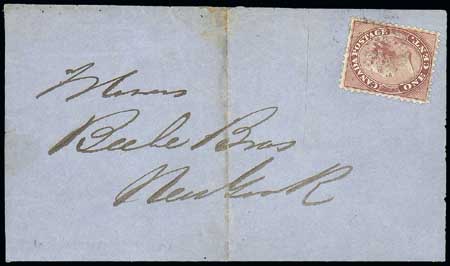 CANADA POSTAGE
ONE CENT
Messrs
Beebe Bros
New York